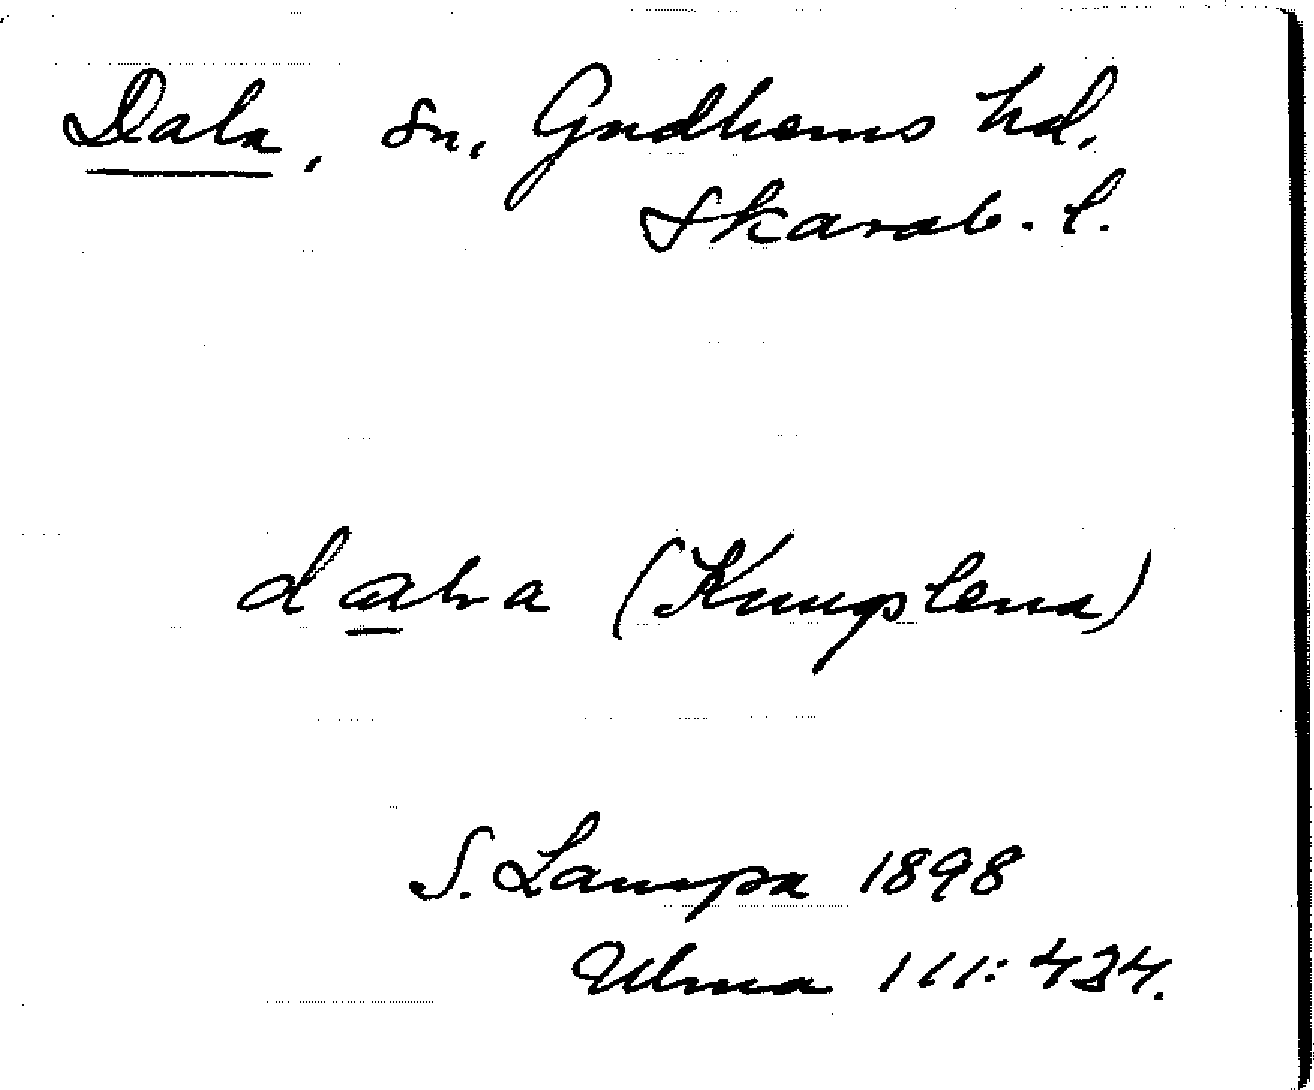 Dala, sn, Gudhems hd.
Skarab. l.
daLa (Kungslena)
S. Lampa 1898
Ulma 111: 434.